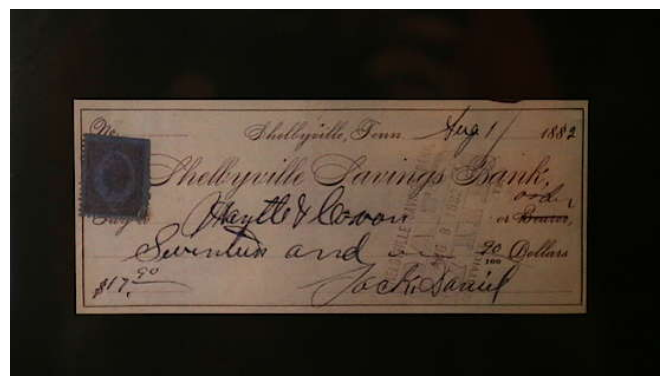 No.
Shelbyville, Tenn. Aug 1 1882
Shelbyville Savings Bank,
order
or Bearer,
Seventeen and 90/100 Dollars
$17.90
Jack Daniel